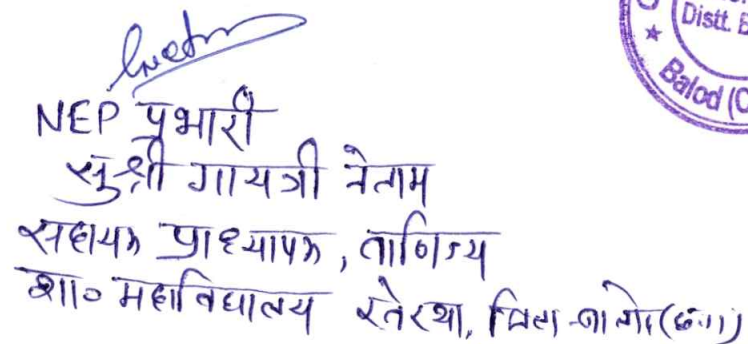 Distt. B
Balod (C
NEP प्रभारी
सुश्री गायत्री नेताम
सहायक प्राध्यापक, वाणिज्य
शा० महाविद्यालय जिला (छ.ग.)